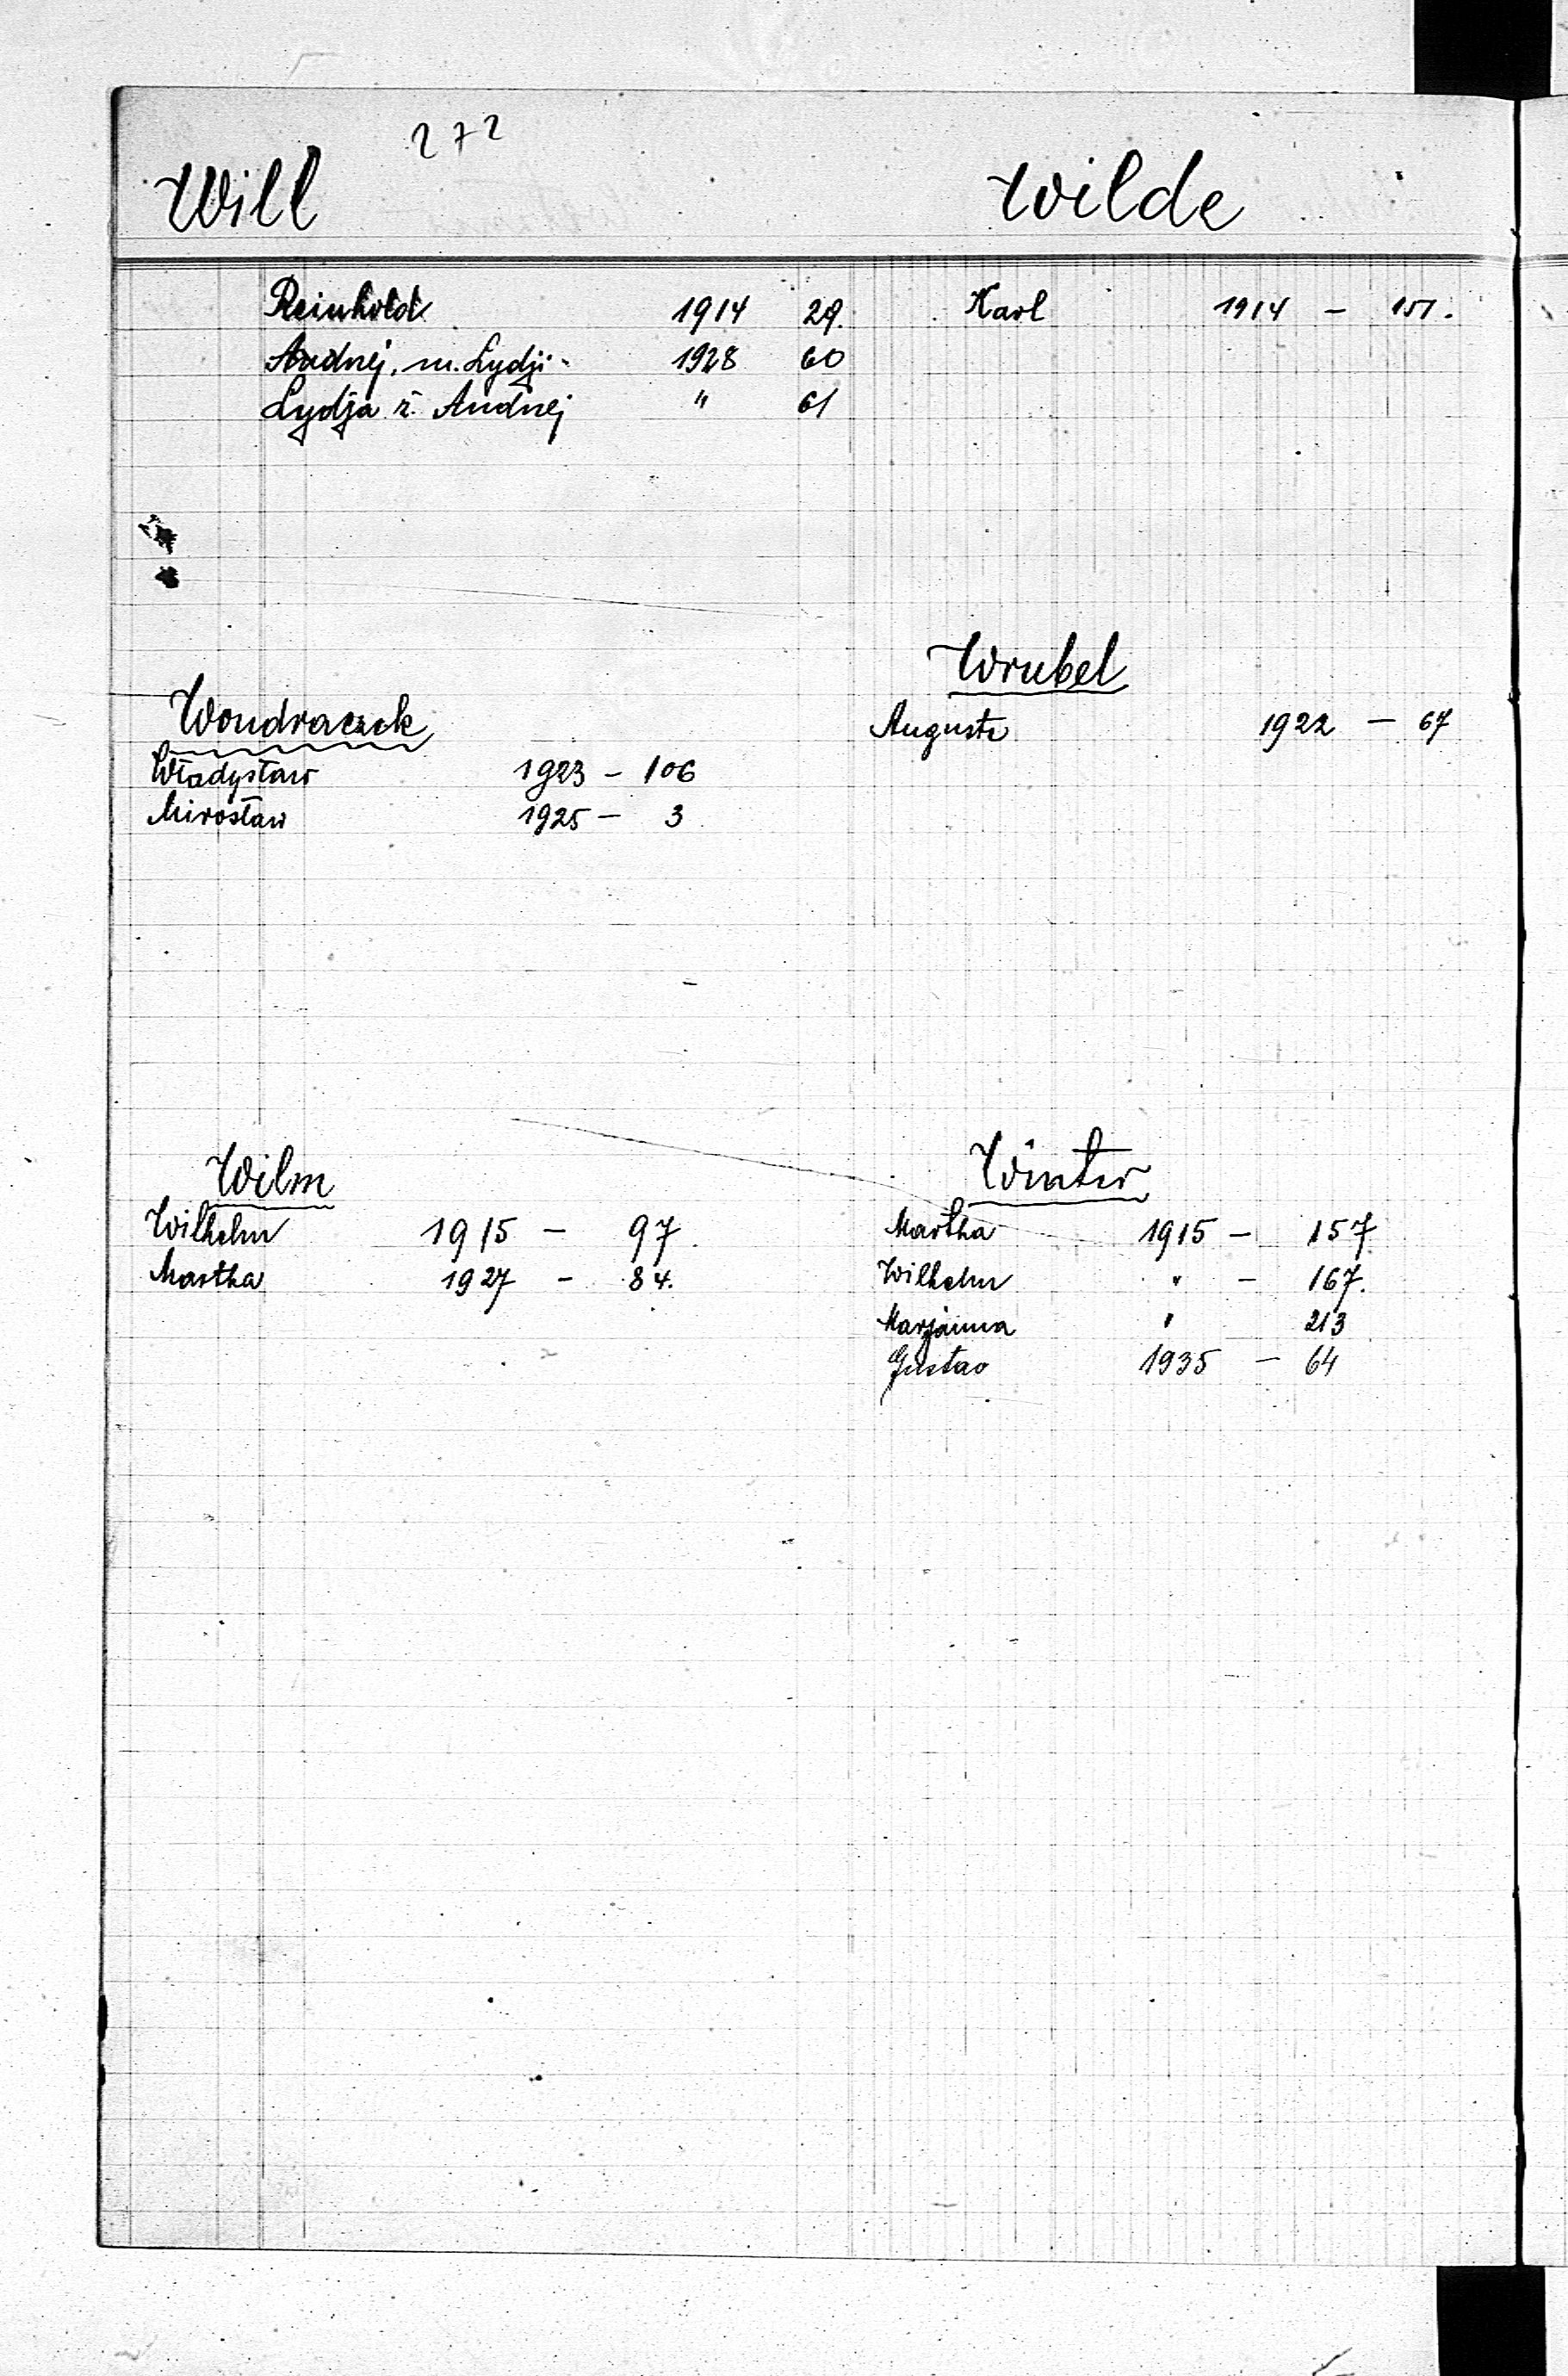 272
Will
Reinhold 1914 29.
Andrzej, m. Lydji 1928 60
Lydja ż. Andrzej " 61
Wilde
Karl 1914 - 151.
Wondraczek
Władysław 1923 - 106
Mirosław 1925 - 3
Wrubel
Auguste 1922 - 67
Wilm
Wilhelm 1915 - 97.
Martha 1927 - 84.
Winter
Martha 1915 - 157
Wilhelm " - 167.
Marjanna " 213
Gustav 1935 - 64